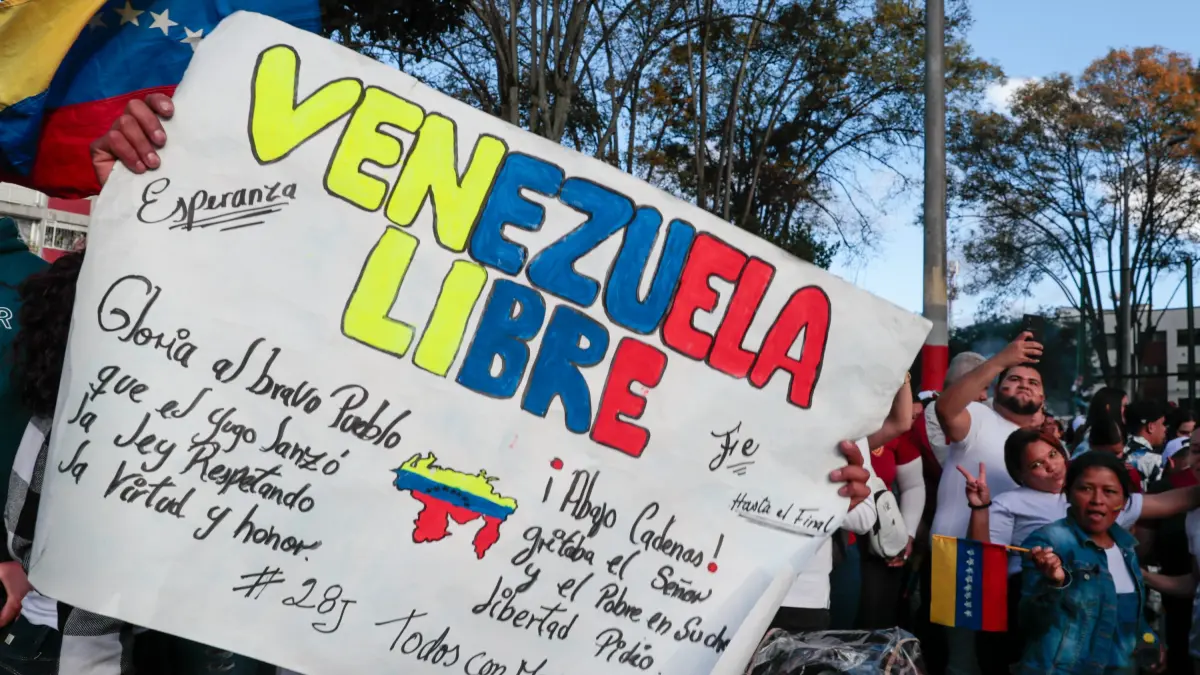 VENEZUELA
LIBRE
Esperanza
Gloria al bravo Pueblo
que el yugo lanzó
la ley Respetando
la Virtud y honor.
# 28J
Fe
Hasta el Final
¡Abajo Cadenas!
gritaba el Señor
y el Pobre en Su cho
libertad Pidio
Todos con
R